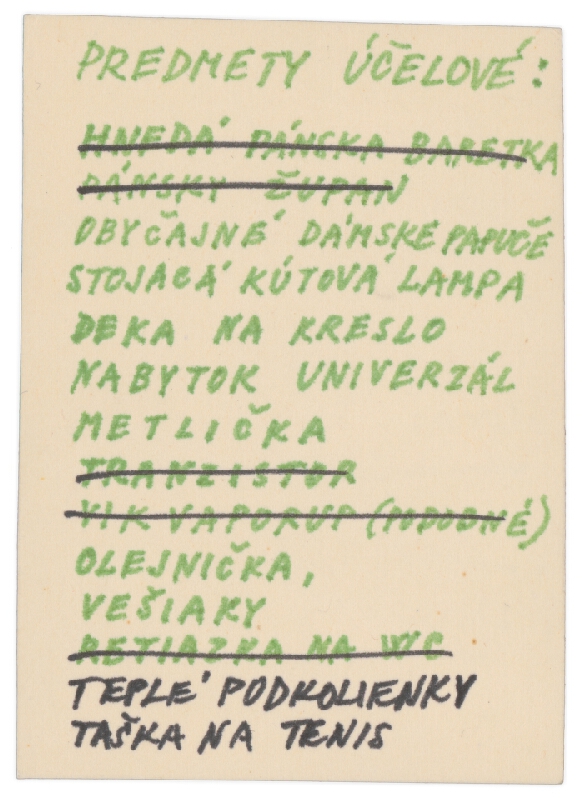 PREDMETY ÚČELOVÉ:
HNEDÁ PÁNSKA BARETKA
PÁNSKY ŽUPAN
OBYČAJNÉ DÁMSKE PAPUČE
STOJACÁ KÚTOVÁ LAMPA
DEKA NA KRESLO
NABYTOK UNIVERZÁL
METLIČKA
TRANZISTOR
VIK VAPORUP (PODOBNÉ)
OLEJNIČKA,
VEŠIAKY
RETIAZKA NA WC
TEPLÉ PODKOLIENKY
TAŠKA NA TENIS